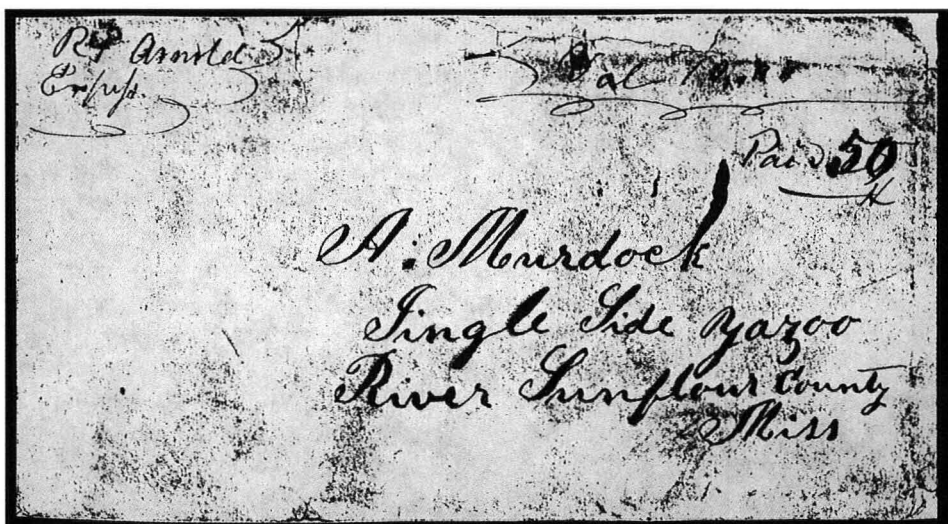 Arnold
Paid 50
A. Murdock
Jingle Side Yazoo
River Sunflour County
Miss